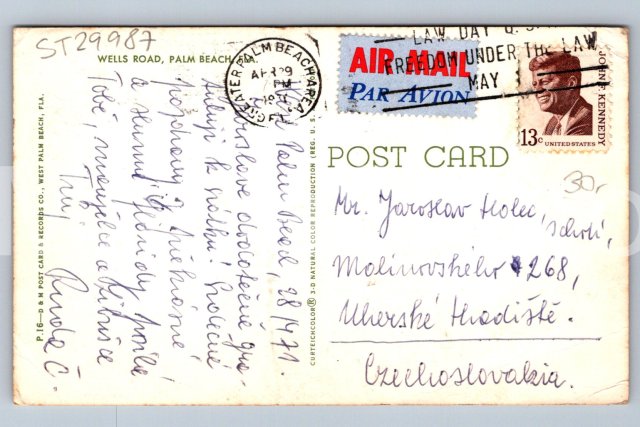 ST29987
WELLS ROAD, PALM BEACH, FLA.
GREATER PALM BEACH AREA
APR 29
PM
FL
LAW DAY U.S.A.
FREEDOM UNDER THE LAW
MAY 1
AIR MAIL
PAR AVION
JOHN F. KENNEDY
13c UNITED STATES
POST CARD
30,-
Mr. Jaroslav Holec,
Malinovského 1268,
Uherské Hradiště.
Czechoslovakia.
P.16—D & M POST CARD & RECORDS CO., WEST PALM BEACH, FLA.
CURTEICHCOLOR® 3-D NATURAL COLOR REPRODUCTION (REG. U.S.
Palm Beach, 28/4 71.
Jaroslave dodatečně gra-
tuluji k svátku. Srdečné
pozdravy z překrásné
a slunné Floridy posílá
Tobě, manželce a Libušce
Tvůj
Ruda Č.